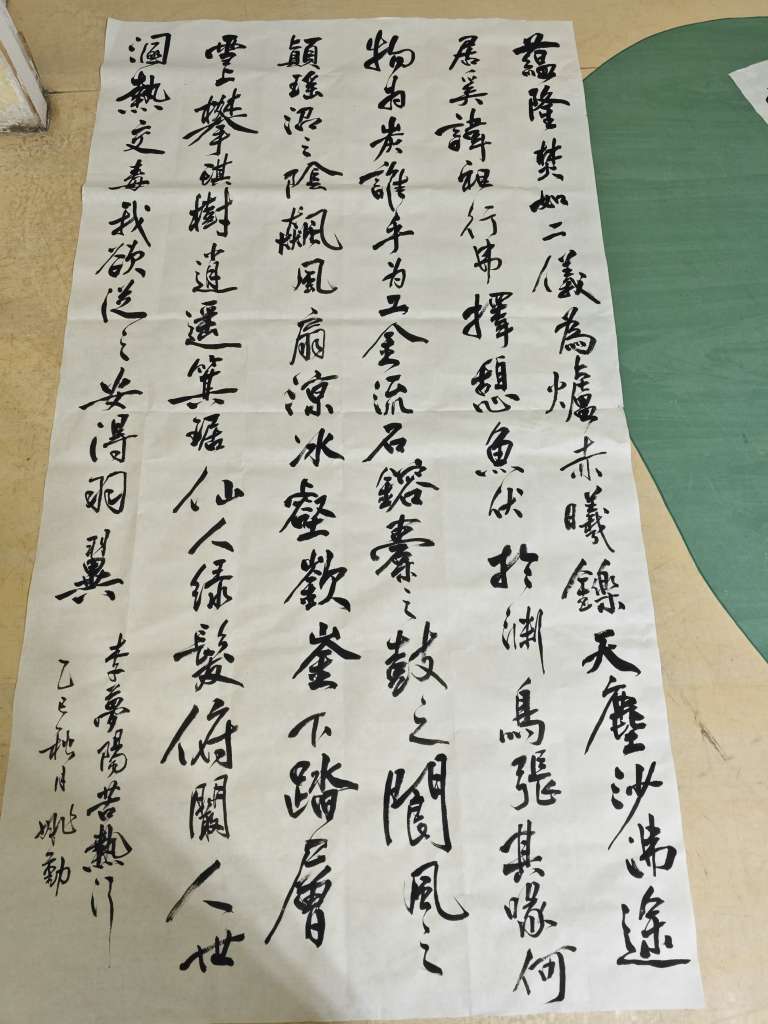 蘊隆焚如二儀為爐赤曦鑠天塵沙沸途
居奚諱袒行弗擇憩魚伏於淵鳥張其喙何
物為炭誰乎为工金流石鎔橐之鼓之閬風之
顛瑤沼之陰飆風扇涼冰壑嵌崟下踏層
雲上攀琪樹逍遥箕踞仙人绿髮俯闞人世
溷熱交毒我欲從之安得羽翼
李夢陽苦熱行
乙巳秋月姚勳